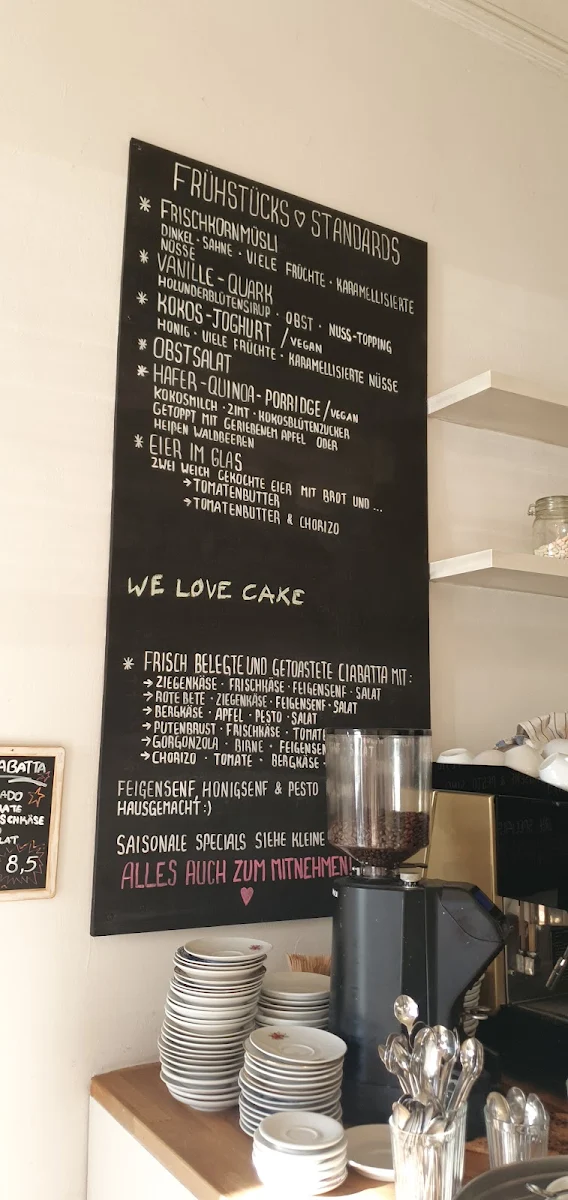 FRÜHSTÜCKS ♡ STANDARDS
* FRISCHKORNMÜSLI
DINKEL · SAHNE · VIELE FRÜCHTE · KARAMELLISIERTE
NÜSSE
* VANILLE - QUARK
HOLUNDERBLÜTENSIRUP · OBST · NUSS-TOPPING
* KOKOS-JOGHURT / VEGAN
HONIG · VIELE FRÜCHTE · KARAMELLISIERTE NÜSSE
* OBSTSALAT
* HAFER-QUINOA-PORRIDGE / VEGAN
KOKOSMILCH · ZIMT · KOKOSBLÜTENZUCKER
GETOPPT MIT GERIEBENEM APFEL ODER
HEIßEN WALDBEEREN
* EIER IM GLAS
ZWEI WEICH GEKOCHTE EIER MIT BROT UND ...
→ TOMATENBUTTER
→ TOMATENBUTTER & CHORIZO
WE LOVE CAKE
* FRISCH BELEGTE UND GETOASTETE CIABATTA MIT:
→ ZIEGENKÄSE · FRISCHKÄSE · FEIGENSENF · SALAT
→ ROTE BETE · ZIEGENKÄSE · FEIGENSENF · SALAT
→ BERGKÄSE · APFEL · PESTO · SALAT
→ PUTENBRUST · FRISCHKÄSE · TOMATE
→ GORGONZOLA · BIRNE · FEIGENSEN
→ CHORIZO · TOMATE · BERGKÄSE ·
FEIGENSENF, HONIGSENF & PESTO
HAUSGEMACHT :)
SAISONALE SPECIALS SIEHE KLEINE
ALLES AUCH ZUM MITNEHMEN!
♥
ABATTA
ADO
ATE
SCHKÄSE
LAT
8,5